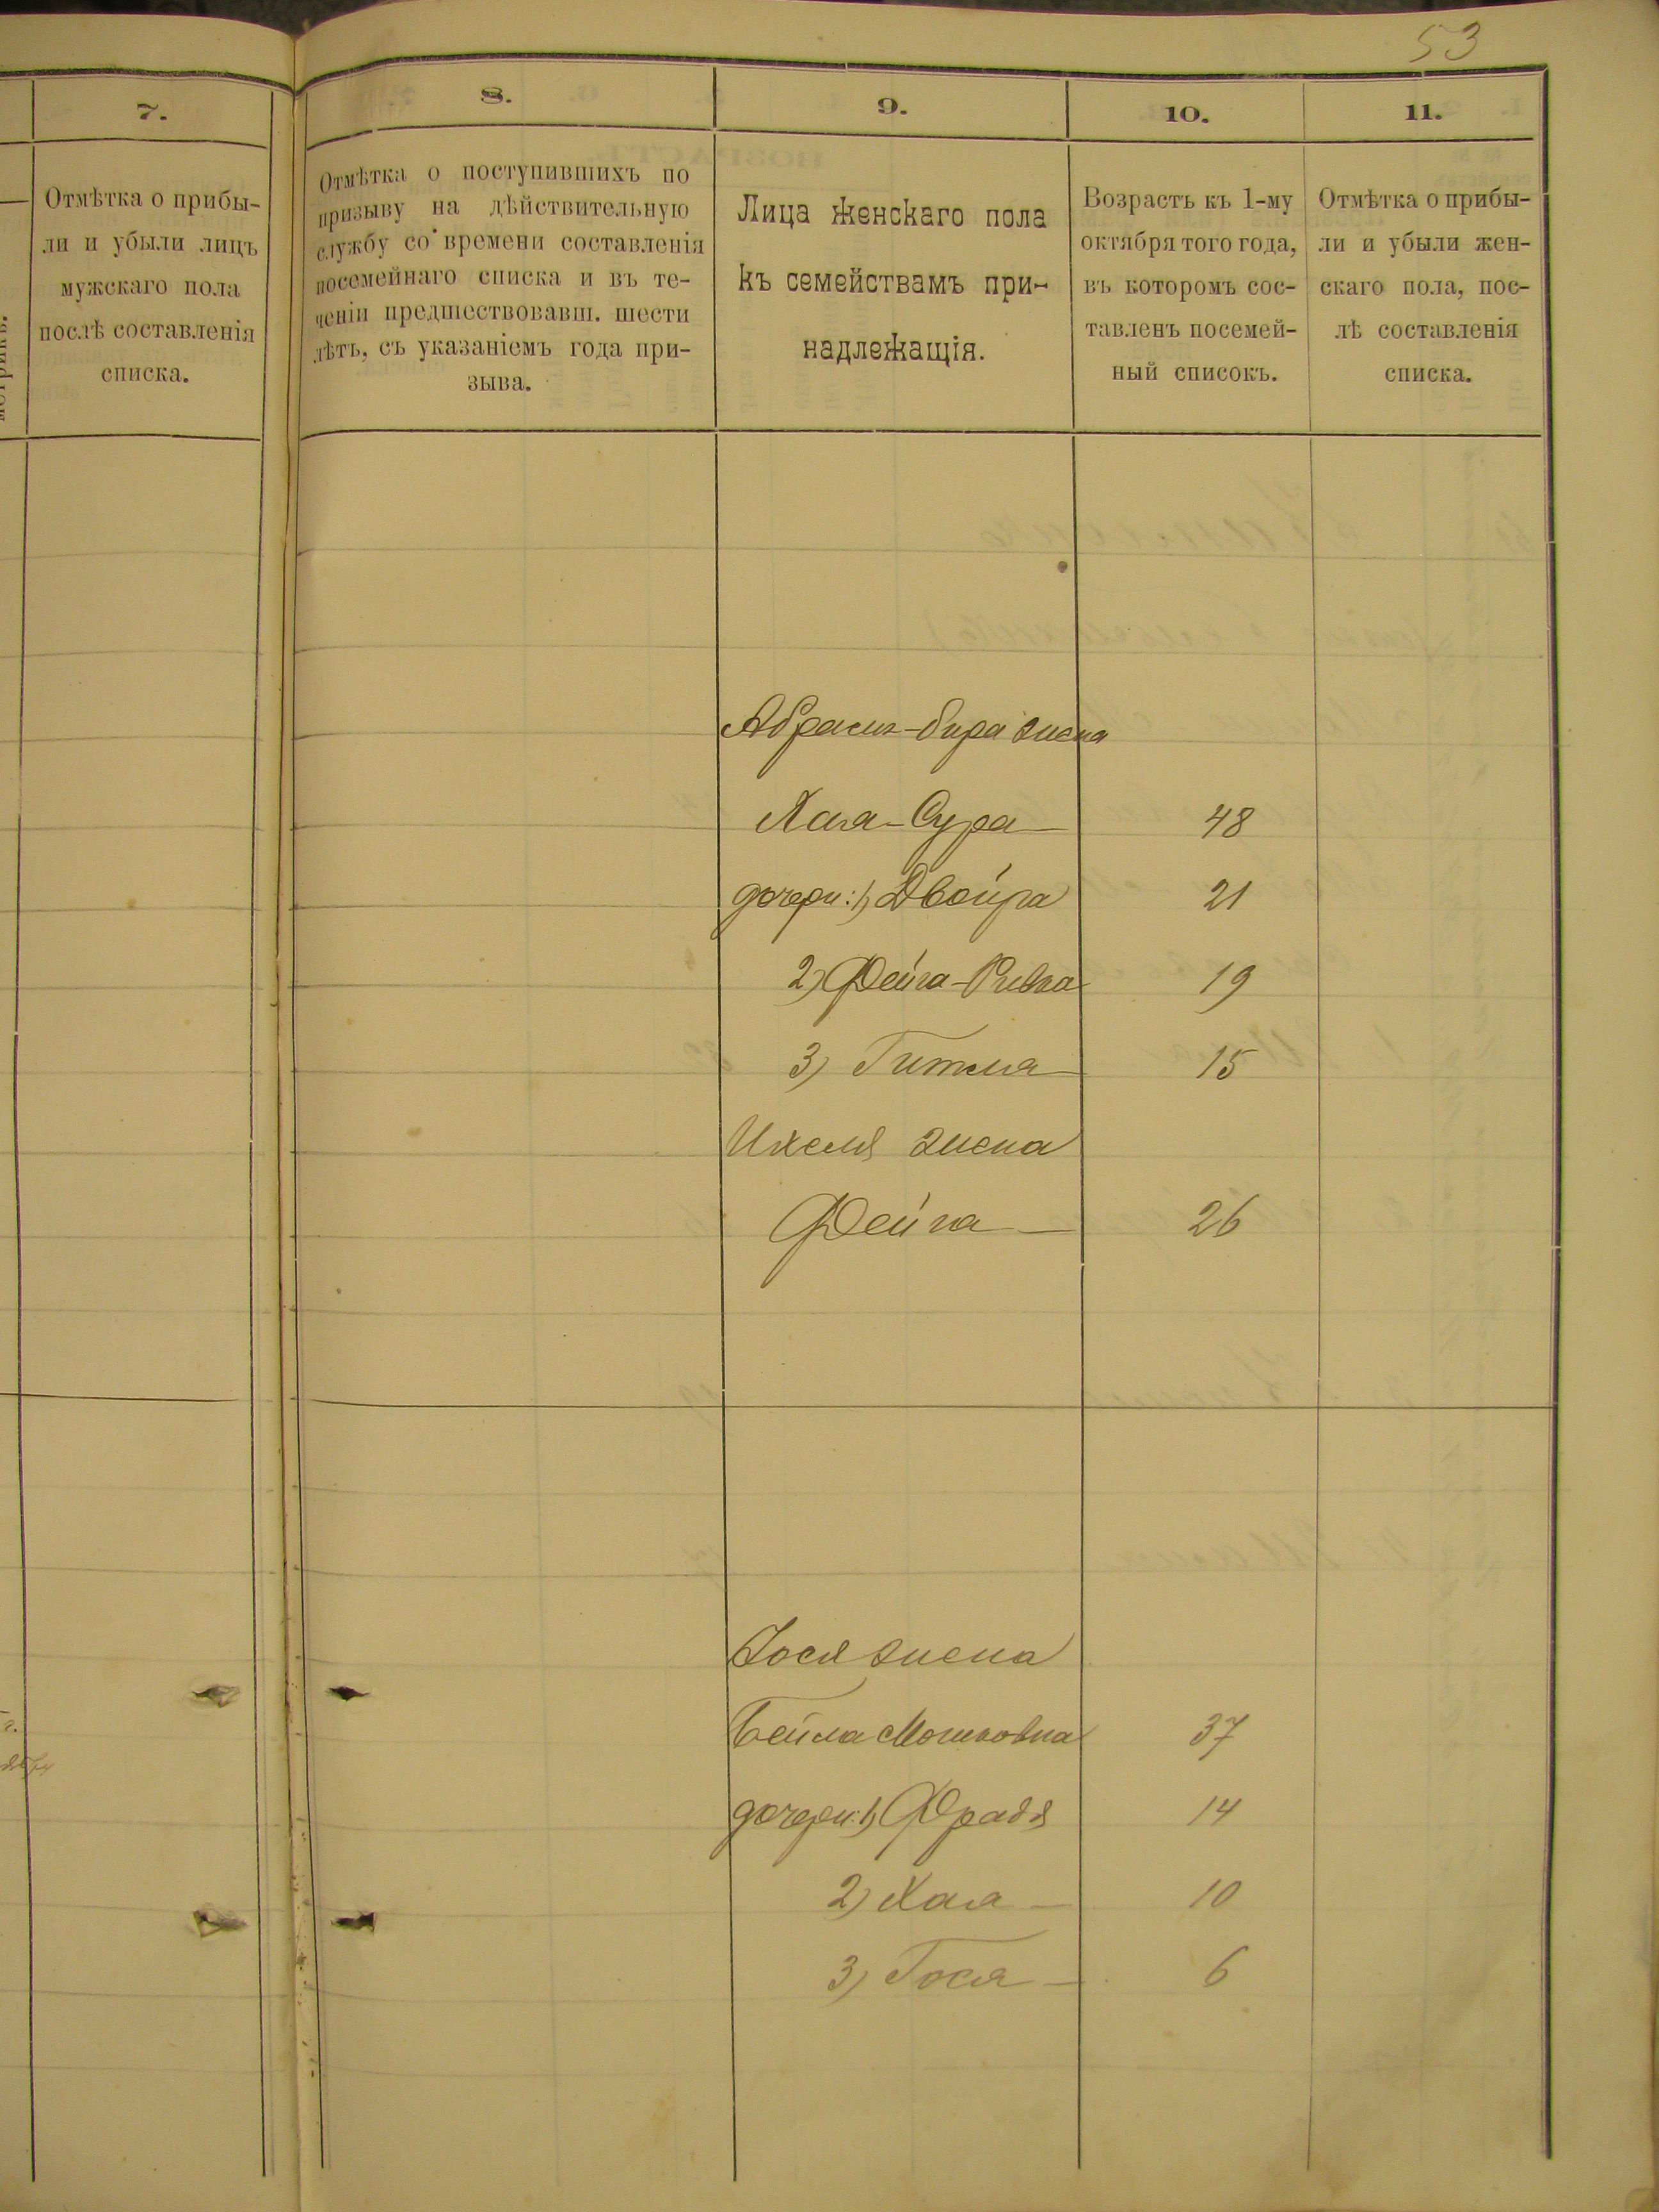 53
7.
8.
9.
10.
11.
Отмѣтка о прибы-
ли и убыли лицъ
мужскаго пола
послѣ составленія
списка.
Отмѣтка о поступившихъ по
призыву на дѣйствительную
службу со времени составленія
посемейнаго списка и въ те-
ченіи предшествовавш. шести
лѣтъ, съ указаніемъ года при-
зыва.
Лица женскаго пола
къ семействамъ при-
надлежащія.
Возрастъ къ 1-му
октября того года,
въ которомъ сос-
тавленъ посемей-
ный списокъ.
Отмѣтка о прибы-
ли и убыли жен-
скаго пола, пос-
лѣ составленія
списка.
жена
Хая-Сура 48
дочери: 1) Двойра 21
2) Фейга-Ривка 19
3) Гитля 15
Ихеля жена
Фейга 26
Іося жена
Бейла Мошковна 37
дочери: 1) Фрадя 14
2) Хая 10
3) Гося 6